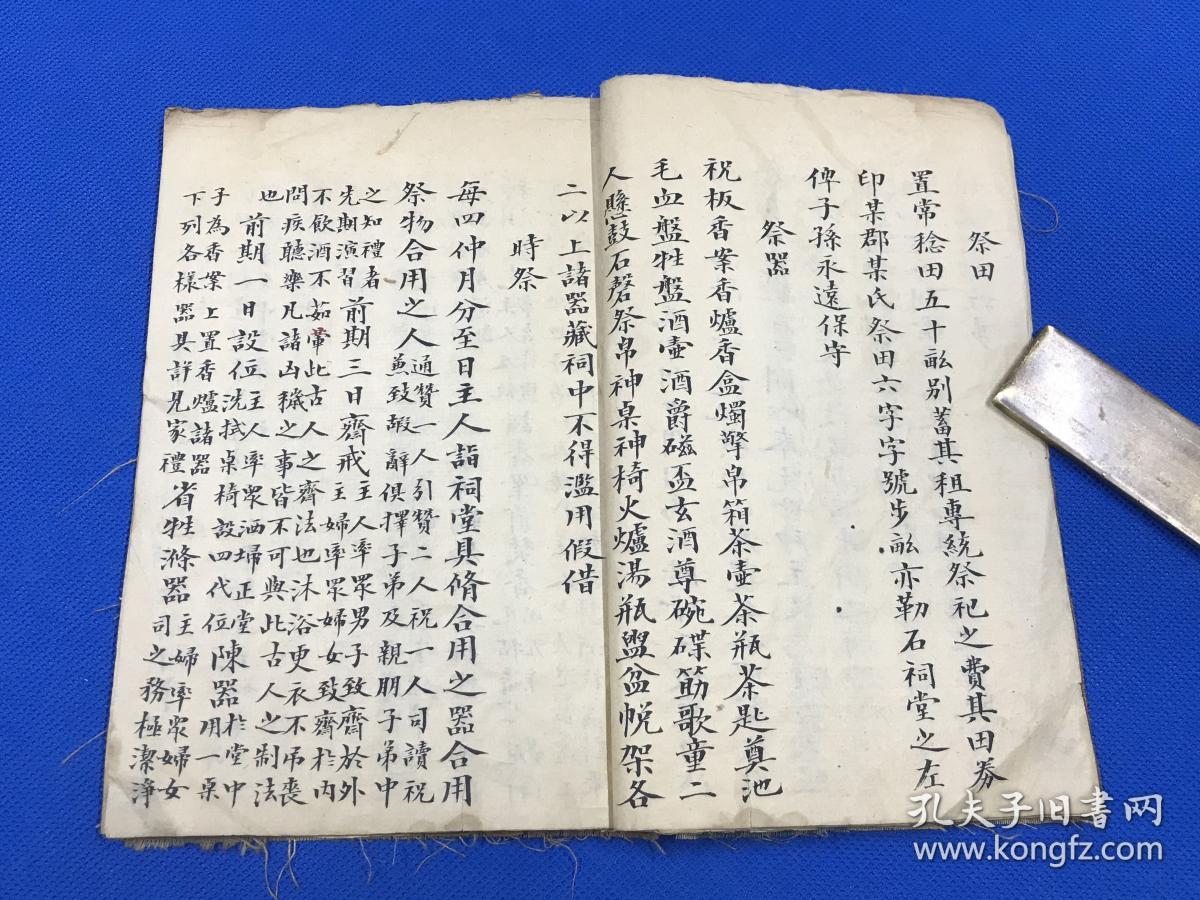 祭田
置常稔田五十畝别蓄其租專統祭祀之費其田劵
印某郡某氏祭田六字字號步畝亦勒石祠堂之左
俾子孫永遠保守
祭器
祝板香案香爐香盒燭擎帛箱茶壷茶瓶茶匙奠池
毛血盤牲盤酒壷酒爵磁盃玄酒尊碗碟筯歌童二
人懸鼓石磬祭帛神桌神椅火爐湯瓶盥盆帨架各
二以上諸器藏祠中不得濫用假借
時祭
每四仲月分至日主人詣祠堂具脩合用之器合用
祭物合用之人通贊一人引贊二人祝一人司讀祝
兼致嘏辭俱擇子弟及親朋子弟中
之知禮者
先期演習前期三日齊戒主人率眾男子致齊於外
主婦率眾婦女致齊於内
不飲酒不茹葷此古人之齊法也沐浴更衣不吊喪
問疾聽樂凡諸凶穢之事皆不可與此古人之制法
也前期一日設位主人率眾洒埽正堂
洗拭桌椅設四代位陳器於堂中
用一桌
子為香案上置香爐諸器
下列各様器具詳見家禮省牲滌器主婦率眾婦女
司之務極潔淨
孔夫子旧书网
www.kongfz.com